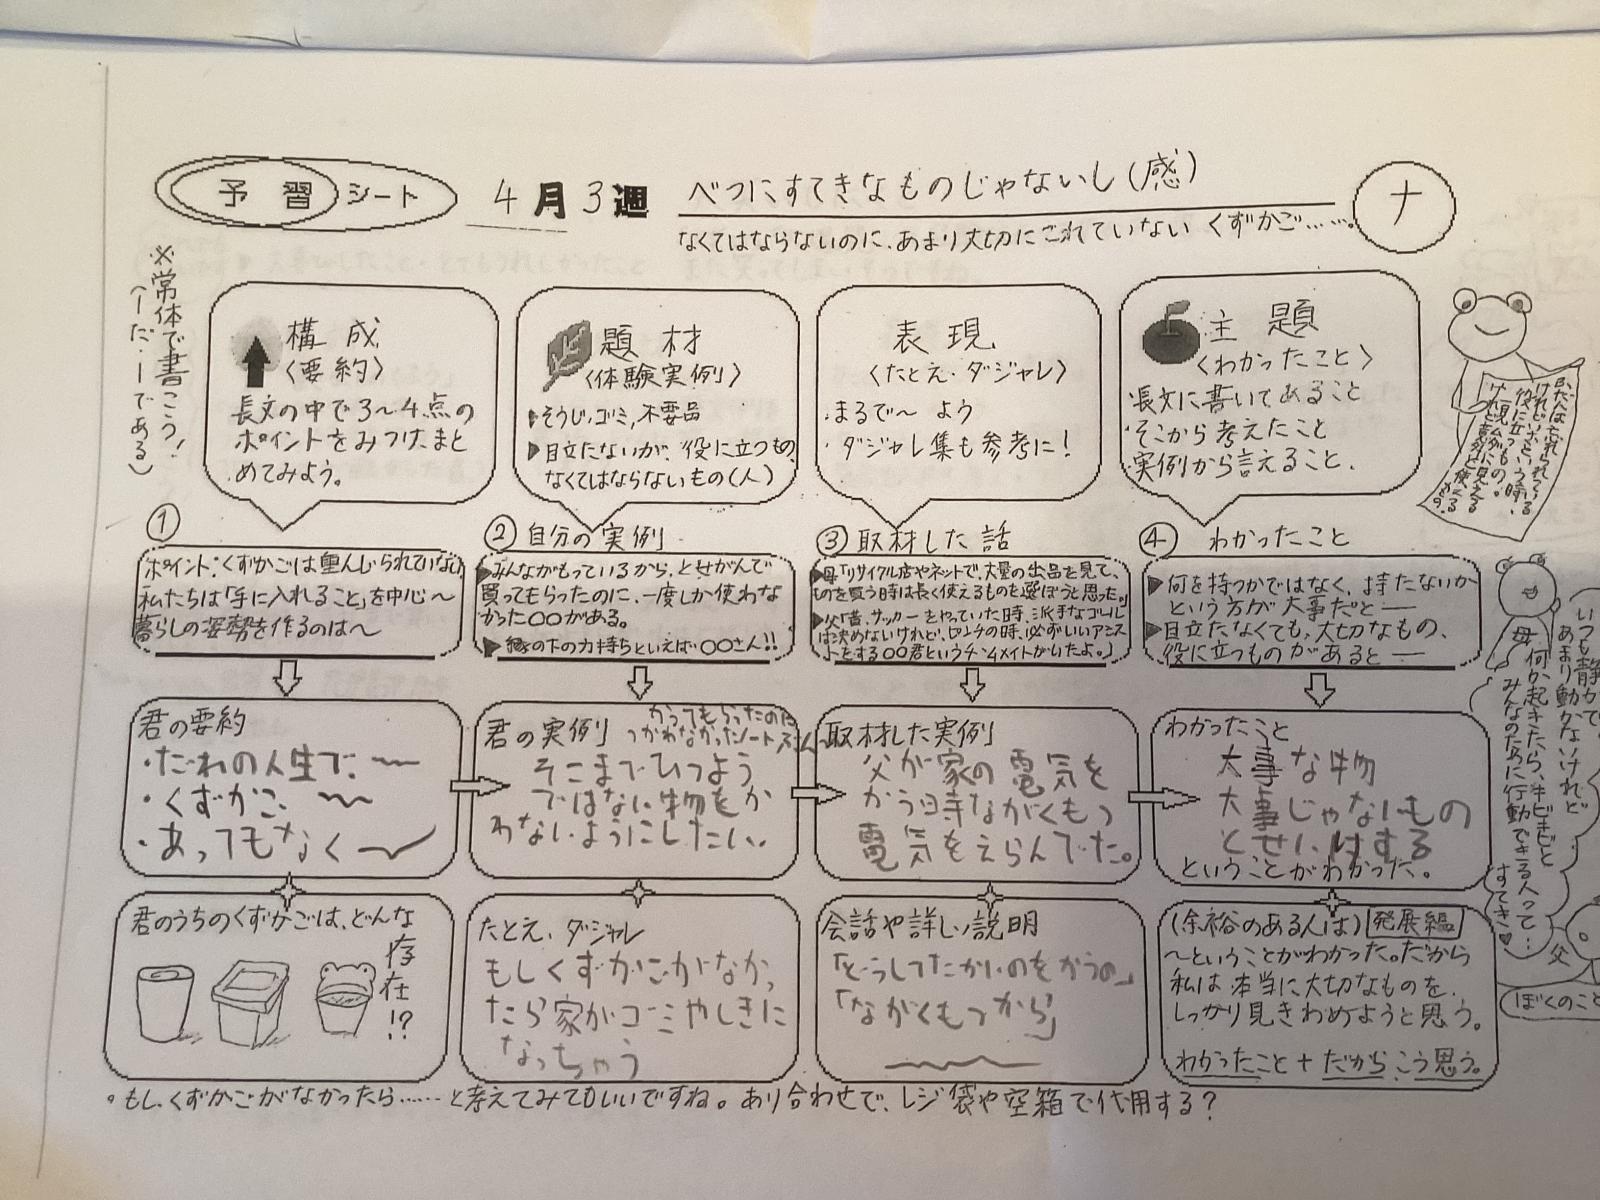 予習シート 4月3週 べつにすてきなものじゃないし(感) ナ
なくてはならないのに、あまり大切にされていない くずかご……。
※常体で書こう!
(ーだ。ーである)
構成
〈要約〉
長文の中で3〜4点の
ポイントをみつけ、まと
めてみよう。
題材
〈体験実例〉
▶そうじ,ゴミ,不要品
▶目立たないが、役に立つもの
なくてはならないもの(人)
表現
〈たとえ・ダジャレ〉
・まるで〜 よう
・ダジャレ集も参考に!
主題
〈わかったこと〉
・長文に書いてあること
・そこから考えたこと
・実例から言えること、
①
ポイント:くずかごは重んじられていない
私たちは「手に入れること」を中心〜
暮らしの姿勢を作るのは〜
② 自分の実例
▶みんながもっているから、とせがんで
買ってもらったのに、一度しか使わな
かった〇〇がある。
▶縁の下の力持ちといえば〇〇さん!!
③ 取材した話
▶母「リサイクル店やネットで、大量の出品を見て、
ものを買う時は長く使えるものを選ぼうと思った。」
▶父「昔、サッカーをやっていた時、派手なゴール
は決めないけれど、ピンチの時、必ずいいアシス
トをする〇〇君というチームメイトがいたよ。」
④ わかったこと
▶何を持つかではなく、持たないか
という方が大事だと―
▶目立たなくても、大切なもの、
役に立つものがあると―
君の要約
・だれの人生で、〜〜
・くずかご 〜〜
・あってもなく
君の実例
かってもらったのに
つかわなかったノート
そこまでひつよう
ではない物をか
わないようにしたい。
取材した実例
父が家の電気を
かう時ながくもつ
電気をえらんでた。
わかったこと
大事な物
大事じゃないもの
とせいりする
ということがわかった。
君のうちのくずかごは、どんな
存在!?
たとえ、ダジャレ
もしくずかごがなかっ
たら家がゴミやしきに
なっちゃう
会話や詳しい説明
「どうしてたかいのをかうの」
「ながくもつから」
(余裕のある人は) 発展編
〜ということがわかった。だから
私は本当に大切なものを、
しっかり見きわめようと思う。
わかったこと + だから こう思う。
いつも静かで、
あまり動かないけれど
何か起きたら、キビキビと
みんなのために行動できる人って…
すてき♥
母
父
ぼくのこと
。もし、くずかごがなかったら……と考えてみてもいいですね。あり合わせで、レジ袋や空箱で代用する?